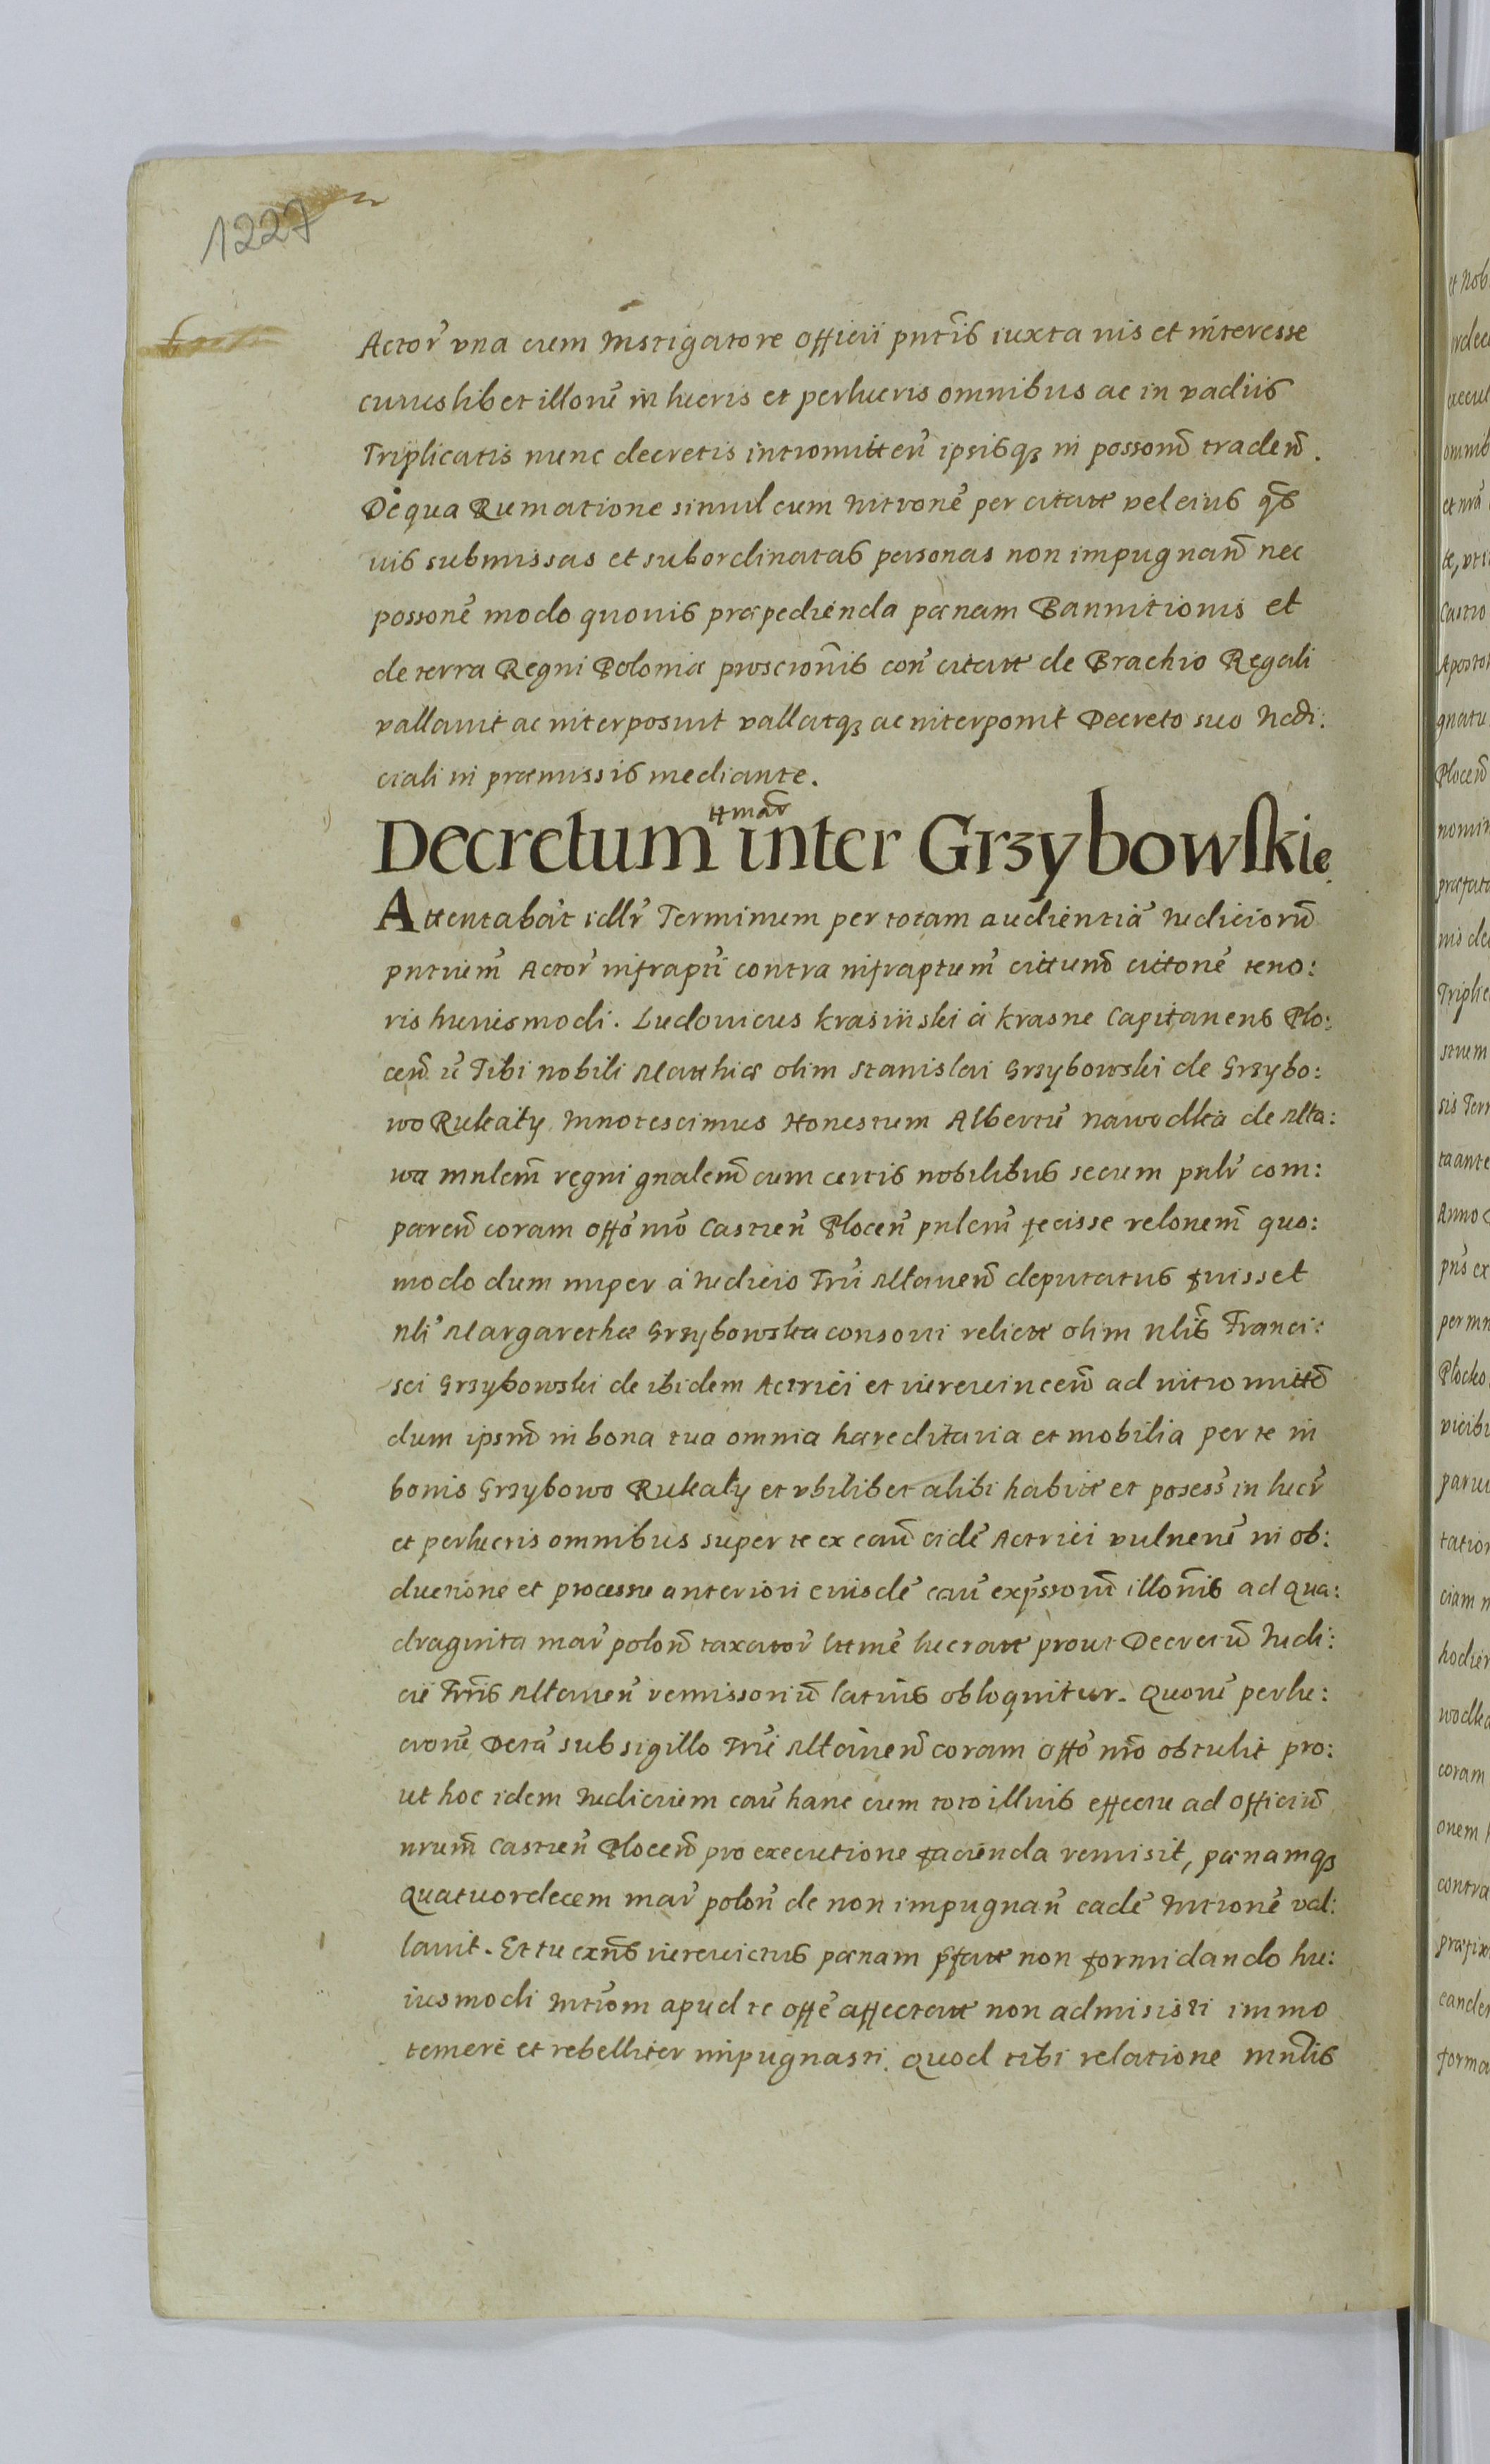 1227
Actor̃ vna cum Instigatore Officii pnt̃is iuxta uis et interesse
cuiuslibet illonẽ in lucris et perlucris omnibus ac in vadiis
Triplicatis nunc decretis intromitteñ ipsisqꝫ in possonẽ tradeñ.
De qua Rumatione simul cum Intronẽ per citatt vel eius qũs
uis submissas et subordinatas personas non impugnañ nec
possonẽ modo quouis præpedienda pœnam Bannitionis et
de terra Regni Poloniæ proscrionis coñ citatt de Brachio Regali
vallauit ac interposuit vallatqꝫ ac interponit Decreto suo Iudi:
ciali in præmissis mediante.
ttmar̃
Decretum inter Grzybowskie
Attentabat sellr̃ Terminum per totam audientiã Iudiciorũ
pntium̃ Actor̃ infrapti contra infraptum̃ cittum̃ cittonẽ teno:
ris huiusmodi. Ludouicus Krasiński á Krasne Capitaneus Plo:
ceñ ũ Tibi nobili Matthiæ olim Stanislai Grzybowski de Grzybo:
wo Rukały Innotescimus Honestum Albertũ Nawodka de Mła:
wa Mnlem̃ regni gnalem̃ cum certis nobilibus secum pnlr̃ com:
pareñ coram offõ nrõ Castreñ Ploceñ pnlem̃ fecisse relonem̃ quo:
modo dum nuper á Iudicio Trri Mlaueñ deputatus fuisset
Nli Margarethæ Grzybowska consorti relictæ olim Nlis Franci:
sci Grzybowski de ibidem Actrici et iureuinceñ ad intromittẽ
dum ipsam̃ in bona tua omnia hæreditaria et mobilia per te in
bonis Grzybowo Rukały et vbilibet alibi habitt et posess̃ in lucr̃
et perlucris omnibus super te ex caũ eidẽ Actrici vulnerũ in ob:
ductione et processu anteriori eiusdẽ caũ exp̃ssorum̃ illoñis ad qua:
draginta mar̃ poloñ taxator̃ lttmẽ lucratt prout Decretũ Iudi:
cii Trris Mlaueñ remissoriũ latius obloquitur. Quorũ perlu:
crorũ Detã sub sigillo Trri Mlaueñ coram offõ nrõ obtulit pro:
ut hoc idem Iudicium caũ hanc cum toto illius effectu ad officiũ
nrum̃ Castreñ Ploceñ pro executione facienda remisit, pœnamqꝫ
quatuordecem mar̃ poloñ de non impugnañ eadẽ Intronẽ val:
lauit. Et tu exñs iureuictus pœnam pfatt non formidando hu:
iusmodi Intrõm apud te offẽ affectatt non admisisti immo
temerè et rebelliter impugnasti. Quod tibi relatione Mnlis